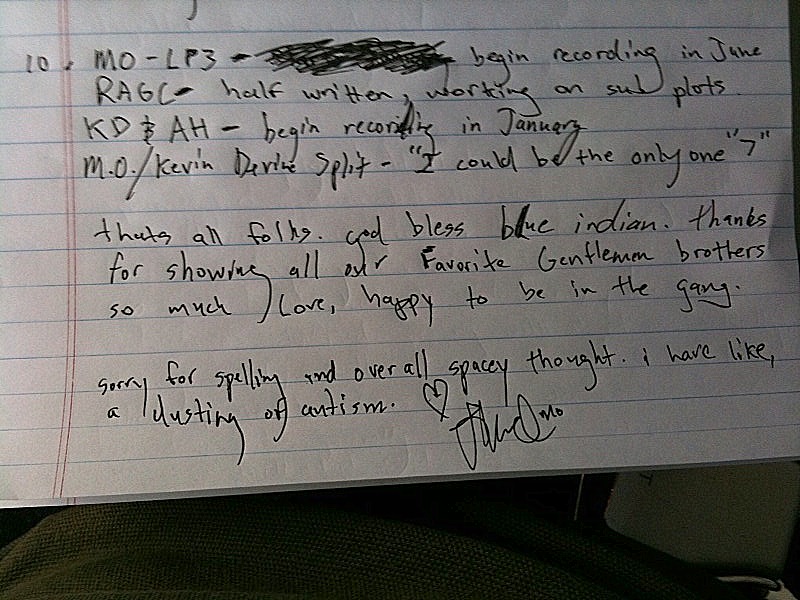 10. MO-LP3 - begin recording in June
RAGC- half written, working on sub plots.
KD & AH - begin recording in January
M.O./Kevin Devine Split - "I could be the only one" 7"
thats all folks. god bless blue indian. thanks
for showing all our Favorite Gentlemen brothers
so much love, happy to be in the gang.
sorry for spelling and over all spacey thought. i have like,
a dusting of autism. ♡
MO